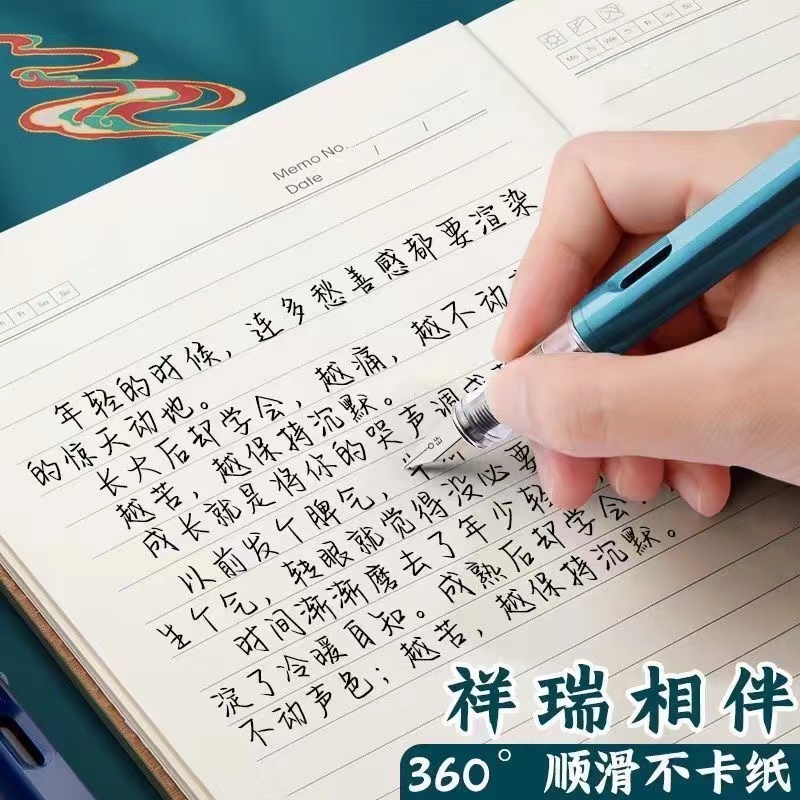 Mo Tu We Th Fr Sa Su
Memo No.
Date / /
Fr Sa Su
年轻的时候，连多愁善感都要渲染
的惊天动地。
长大后却学会，越痛，越不动
越苦，越保持沉默。
成长就是将你的哭声调成
以前发个脾气，
生个气，转眼就觉得没必要
时间渐渐磨去了年少轻
淀了冷暖自知。成熟后却学会
不动声色；越苦，越保持沉默。
祥瑞相伴
360°顺滑不卡纸